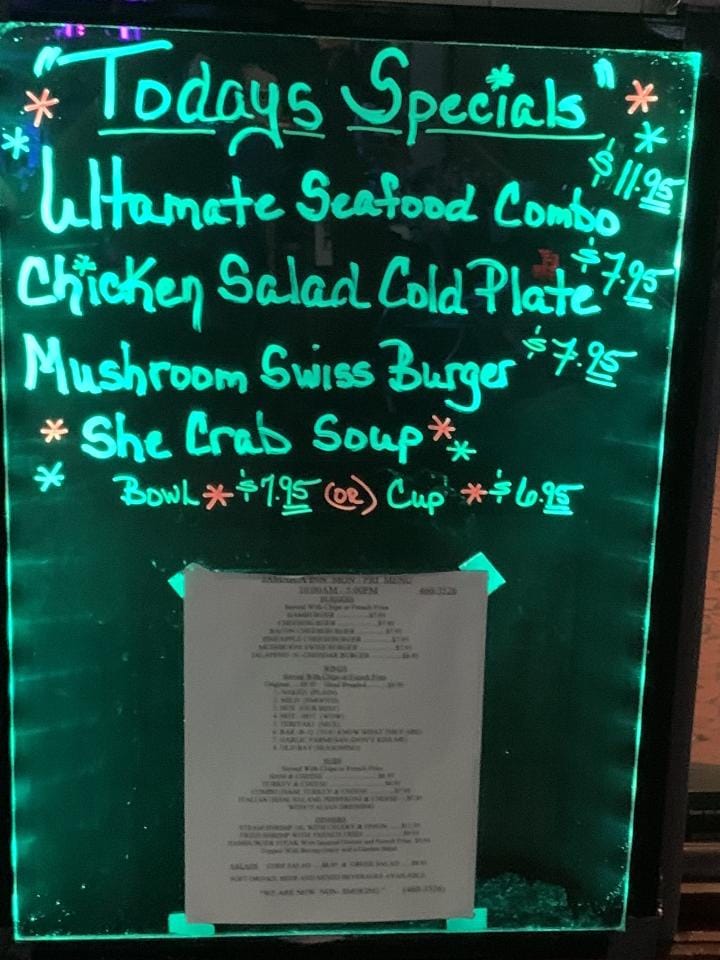 "Todays Specials"
Ultamate Seafood Combo $11.95
Chicken Salad Cold Plate $7.95
Mushroom Swiss Burger $7.95
* She Crab Soup *
Bowl * $7.95 (OR) Cup * $6.95
JAMAICA INN MON - FRI MENU
10:00AM - 5:00PM 460-3526
BURGERS
Served With Chips or French Fries
HAMBURGER
CHEESEBURGER
BACON CHEESEBURGER
PINEAPPLE CHEESEBURGER
MUSHROOM SWISS BURGER
JALAPENO -N- CHEDDAR BURGER
WINGS
Served With Chips or French Fries
1. NAKED (PLAIN)
2. MILD (SMOOTH)
3. HOT (OUR BEST)
4. HOT - HOT (WOW)
5. TERIYAKI (NICE)
7. GARLIC PARMESAN (DON'T KISS ME)
8. OLD BAY (SEASONING)
SUBS
Served With Chips or French Fries
HAM & CHEESE
TURKEY & CHEESE
COMBO (HAM, TURKEY & CHEESE
ITALIAN (HAM, SALAMI, PEPPERONI & CHEESE
WITH ITALIAN DRESSING
DINNERS
STEAM SHRIMP
FRIED SHRIMP WITH FRENCH FRIES
HAMBURGER STEAK With Sauteed Onions and French Fries
SALADS CHEF SALAD & GREEK SALAD
SOFT DRINKS, BEER AND MIXED BEVERAGES AVAILABLE
"WE ARE NOW NON- SMOKING" (460-3526)